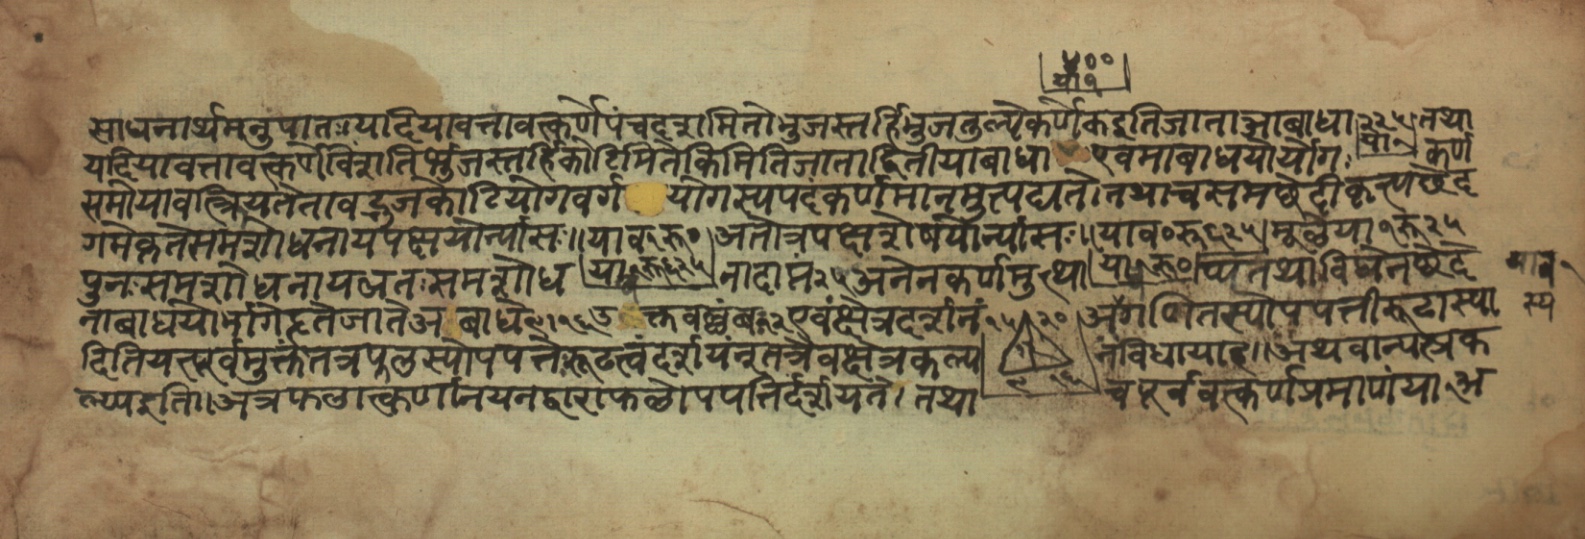 ४००
या १
साधनार्थमनुपातः।यदियावत्तावत्कर्णेपंचदशमितोभुजस्तर्हिभुजतुल्येकर्णेकइतिजाताआबाधा २२५ या १ तथा
यदियावत्तावत्कर्णेविंशतिर्भुजस्तर्हिकोटिमितेकिमितिजाताद्वितीयाबाधा एवमाबाधयोर्योगः कर्ण
समोयावत्क्रियतेतावद्भुजकोटियोगवर्ग योगस्यपदंकर्णमानमुत्पद्यते।तथाचसमछेदीकृत्यछेद
गमेकृतेसमशोधनायपक्षयोर्न्यासः॥याव१रू० अतोत्रपक्षशेषयोर्न्यासः॥याव०रू६२५ मूलेया१रू२५
पुनःसमशोधनाय समशोध या०रू६२५ नादाप्तं२५अनेनकर्णमुत्था या०रू०प्य तथाविधेनछेदे
नाबाधयोर्भागेहृतेजातेअ बाधे९।१६उ क्तवल्लंबः१२एवंक्षेत्रदर्शनं १५ २० अंगणितस्योपपत्तीरूढास्या
दितियत्पूर्वमुक्तंतत्र स्योपपत्तेरूढत्वंदर्शयंनुतत्रैवक्षेत्रकल्प ९ १६ नंविधायाह॥अथवान्यत्क
ल्प्यइति॥अत्रफलात्कर्णानयनद्वाराफलोपपत्तिर्दर्श्यते।तथा चपूर्ववत्कर्णप्रमाणंया१अ
स्य